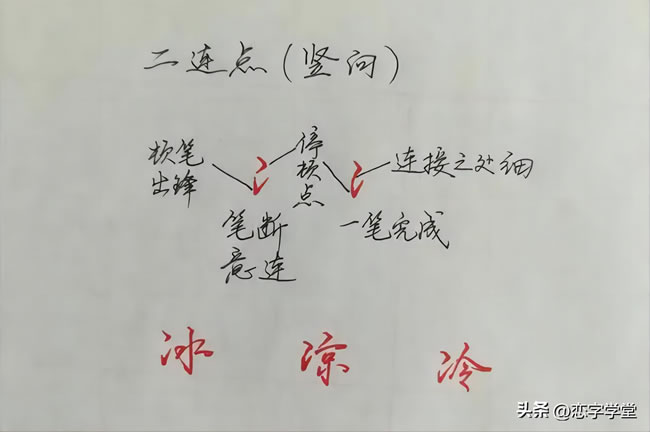 二连点(竖向)
顿笔
出锋
停
顿
点
连接之处细
笔断
意连
一笔完成
冰 凉 冷
头条 @恋字学堂